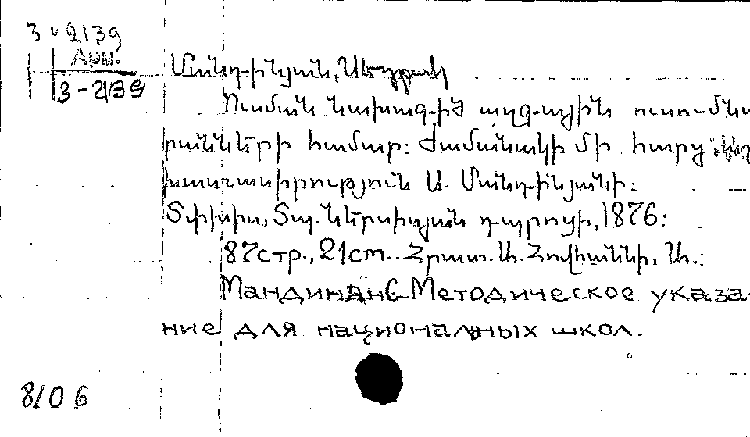 3 - 2139
Арм.
3-2139
Մանդինյան, Սեդրակ
Ուսման նախագիծ ազգային ուսումնա
րանների համար: Ժամանակի մի հարց
խաչատուրություն Ս. Մանդինյանի:
Տփխիս, Տպ. Ներսիսյան դպրոցի, 1876:
87стр., 21cm. Հրատ. Ա. Հովհաննի. Ա.:
Мандинян С Методическое указа
ние для национальных школ.
8106